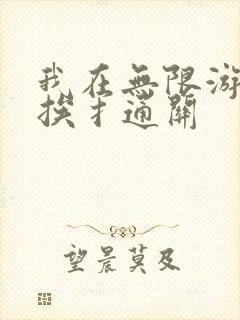 我在無限游
挨扌通關
望晨莫及